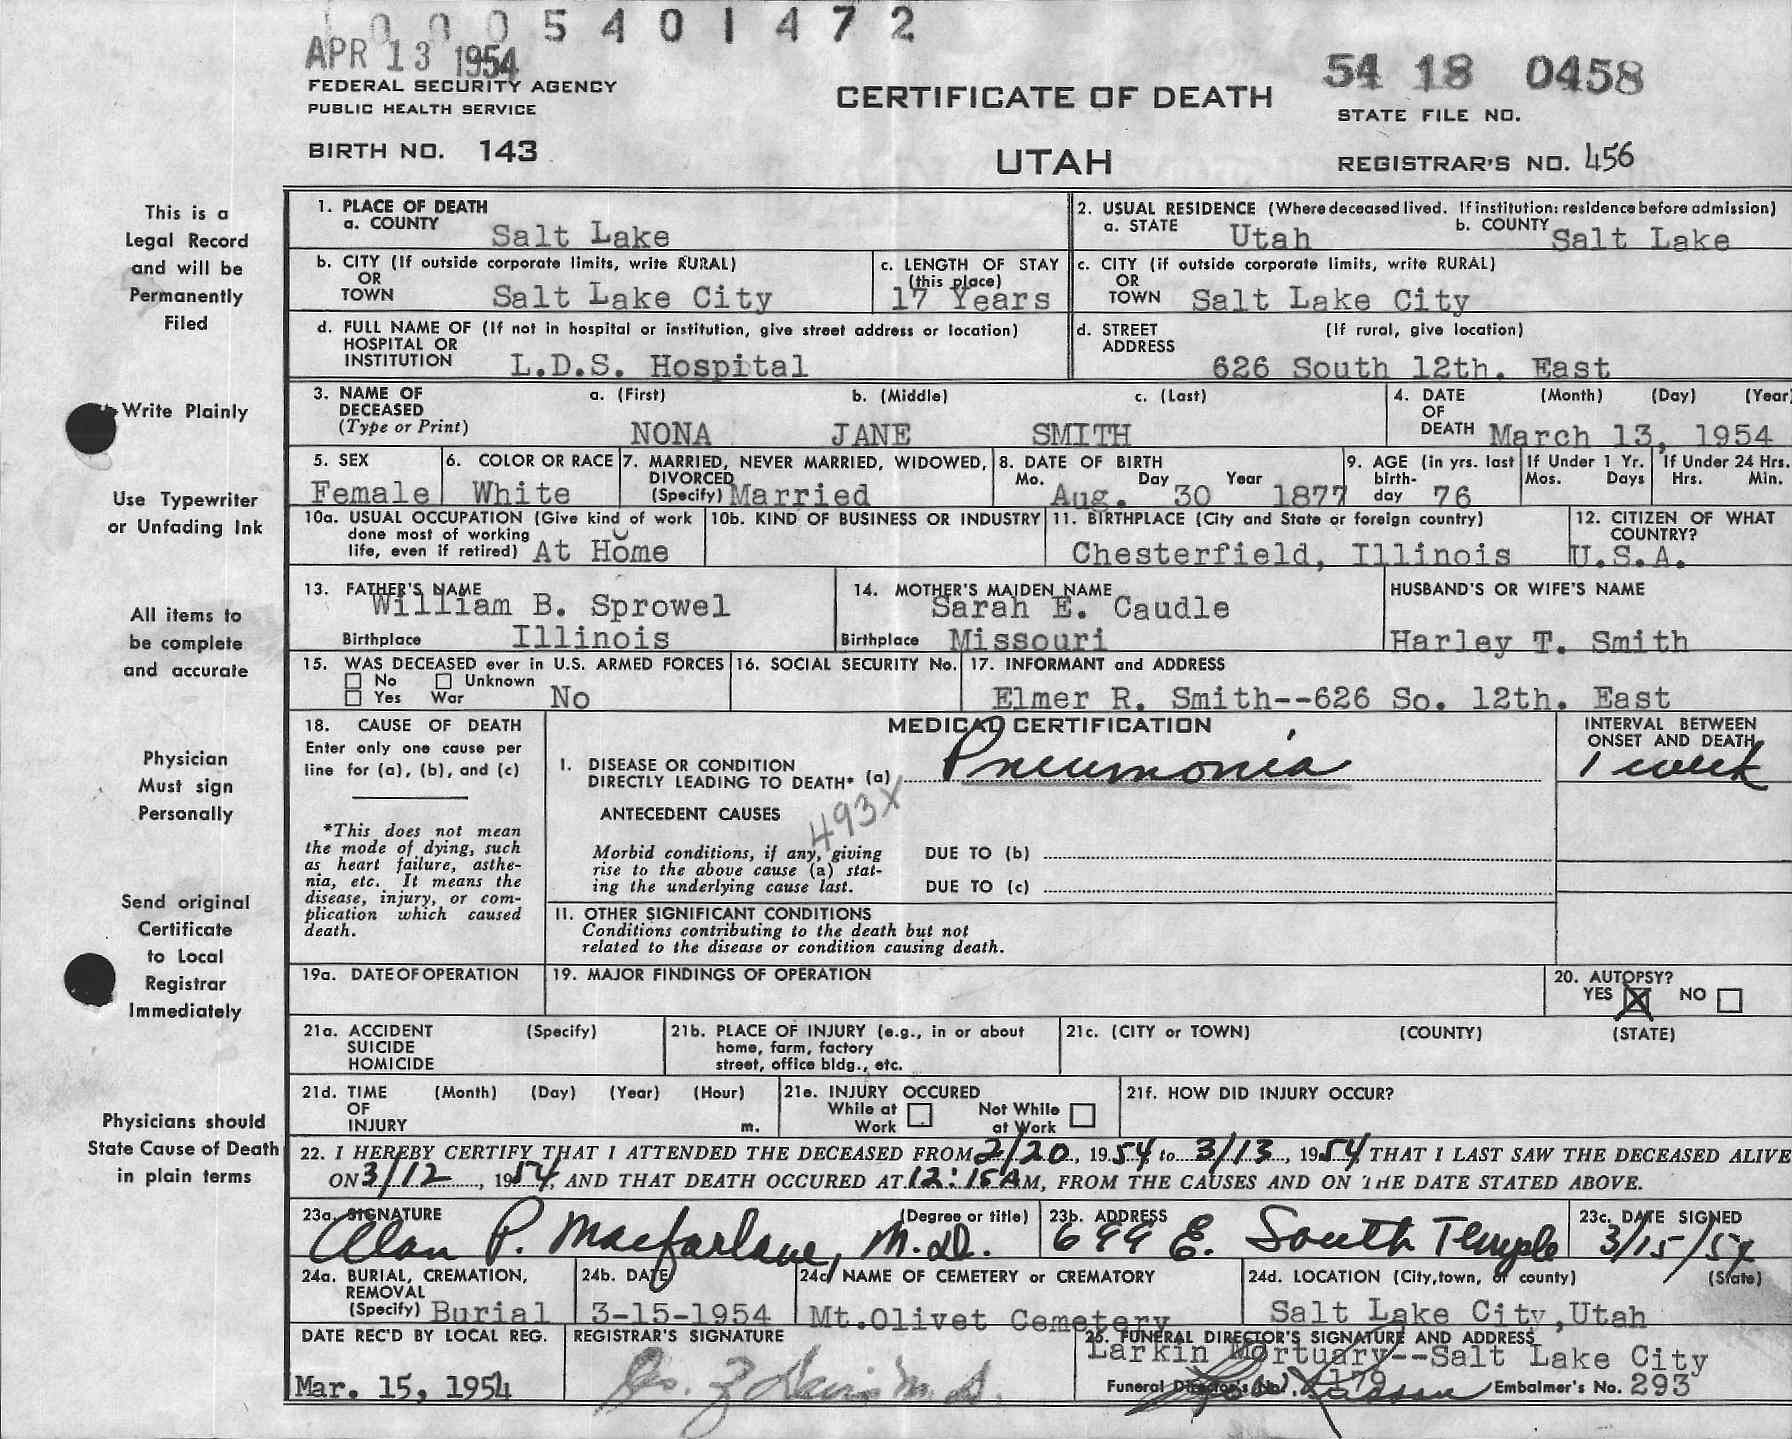 0005401472
APR 13 1954
FEDERAL SECURITY AGENCY
PUBLIC HEALTH SERVICE
BIRTH NO. 143
CERTIFICATE OF DEATH
UTAH
54 18 0458
STATE FILE NO.
REGISTRAR'S NO. 456
This is a
Legal Record
and will be
Permanently
Filed
Write Plainly
Use Typewriter
or Unfading Ink
All items to
be complete
and accurate
Physician
Must sign
Personally
Send original
Certificate
to Local
Registrar
Immediately
Physicians should
State Cause of Death
in plain terms
1. PLACE OF DEATH
a. COUNTY Salt Lake
2. USUAL RESIDENCE (Where deceased lived. If institution: residence before admission)
a. STATE Utah b. COUNTY Salt Lake
b. CITY (If outside corporate limits, write RURAL)
OR
TOWN Salt Lake City
c. LENGTH OF STAY
(this place)
17 Years
c. CITY (if outside corporate limits, write RURAL)
OR
TOWN Salt Lake City
d. FULL NAME OF (If not in hospital or institution, give street address or location)
HOSPITAL OR
INSTITUTION L.D.S. Hospital
d. STREET (If rural, give location)
ADDRESS
626 South 12th. East
3. NAME OF a. (First) b. (Middle) c. (Last)
DECEASED
(Type or Print) NONA JANE SMITH
4. DATE (Month) (Day) (Year)
OF
DEATH March 13, 1954
5. SEX
Female
6. COLOR OR RACE
White
7. MARRIED, NEVER MARRIED, WIDOWED,
DIVORCED
(Specify) Married
8. DATE OF BIRTH
Mo. Day Year
Aug. 30 1877
9. AGE (in yrs. last
birth-
day 76
If Under 1 Yr.
Mos. Days
If Under 24 Hrs.
Hrs. Min.
10a. USUAL OCCUPATION (Give kind of work
done most of working
life, even if retired) At Home
10b. KIND OF BUSINESS OR INDUSTRY
11. BIRTHPLACE (City and State or foreign country)
Chesterfield, Illinois
12. CITIZEN OF WHAT
COUNTRY?
U.S.A.
13. FATHER'S NAME
William B. Sprowel
Birthplace Illinois
14. MOTHER'S MAIDEN NAME
Sarah E. Caudle
Birthplace Missouri
HUSBAND'S OR WIFE'S NAME
Harley T. Smith
15. WAS DECEASED ever in U.S. ARMED FORCES
No Unknown
Yes War No
16. SOCIAL SECURITY No.
17. INFORMANT and ADDRESS
Elmer R. Smith--626 So. 12th. East
18. CAUSE OF DEATH
Enter only one cause per
line for (a), (b), and (c)
*This does not mean
the mode of dying, such
as heart failure, asthe-
nia, etc. It means the
disease, injury, or com-
plication which caused
death.
MEDICAL CERTIFICATION
I. DISEASE OR CONDITION
DIRECTLY LEADING TO DEATH* (a) Pneumonia
INTERVAL BETWEEN
ONSET AND DEATH
1 week
ANTECEDENT CAUSES
493X
Morbid conditions, if any, giving
rise to the above cause (a) stat-
ing the underlying cause last.
DUE TO (b)
DUE TO (c)
II. OTHER SIGNIFICANT CONDITIONS
Conditions contributing to the death but not
related to the disease or condition causing death.
19a. DATE OF OPERATION
19. MAJOR FINDINGS OF OPERATION
20. AUTOPSY?
YES X NO
21a. ACCIDENT (Specify)
SUICIDE
HOMICIDE
21b. PLACE OF INJURY (e.g., in or about
home, farm, factory
street, office bldg., etc.
21c. (CITY or TOWN) (COUNTY) (STATE)
21d. TIME (Month) (Day) (Year) (Hour)
OF
INJURY m.
21e. INJURY OCCURED
While at Work Not While at Work
21f. HOW DID INJURY OCCUR?
22. I HEREBY CERTIFY THAT I ATTENDED THE DECEASED FROM 2/20, 1954, to 3/13, 1954, THAT I LAST SAW THE DECEASED ALIVE
ON 3/12, 1954, AND THAT DEATH OCCURED AT 12:15 AM, FROM THE CAUSES AND ON THE DATE STATED ABOVE.
23a. SIGNATURE (Degree or title)
Alan P. Macfarlane, M.D.
23b. ADDRESS
699 E. South Temple
23c. DATE SIGNED
3/15/54
24a. BURIAL, CREMATION,
REMOVAL
(Specify) Burial
24b. DATE
3-15-1954
24c NAME OF CEMETERY or CREMATORY
Mt.Olivet Cemetery
24d. LOCATION (City, town, or county) (State)
Salt Lake City, Utah
DATE REC'D BY LOCAL REG.
Mar. 15, 1954
REGISTRAR'S SIGNATURE
25. FUNERAL DIRECTOR'S SIGNATURE AND ADDRESS
Larkin Mortuary--Salt Lake City
Funeral Director's No. 179 Embalmer's No. 293